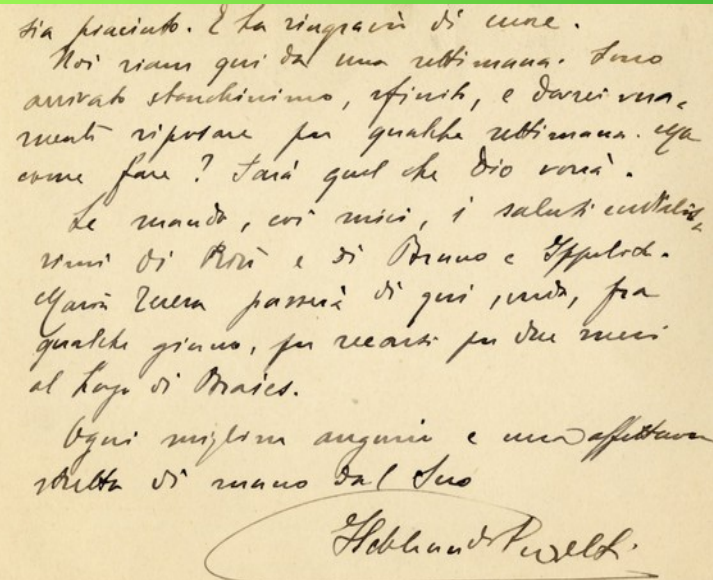 sia piaciuto. E La ringrazio di cuore.
Noi siamo qui da una settimana. Sono
arrivato stanchissimo, sfinito, e dovrei vera-
mente riposare per qualche settimana. Ma
come fare? Sarà quel che Dio vorrà.
Le mando, coi miei, i saluti cordialis-
simi di Rosì e di Bruno e Ippolito.
Maria Teresa passerà di qui, credo, fra
qualche giorno, per recarsi per due mesi
al Lago di Braies.
Ogni migliore augurio e una affettuosa
stretta di mano dal Suo
Ildebrando Pizzetti